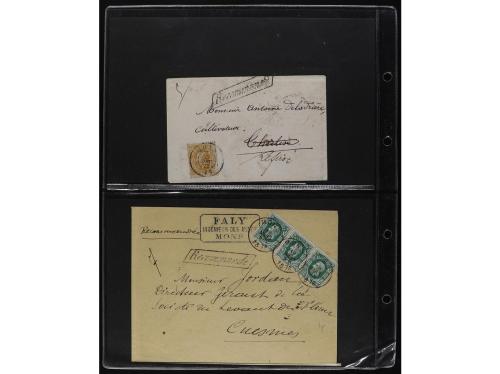 Recommandé
Monsieur Antoine Deladrière,
Cultivateur
FALY
INGÉNIEUR DES MINES
MONS
Recommandée
Recommandé
Monsieur Jordan
Directeur Gérant de la
Société du Levant de
Cuesmes